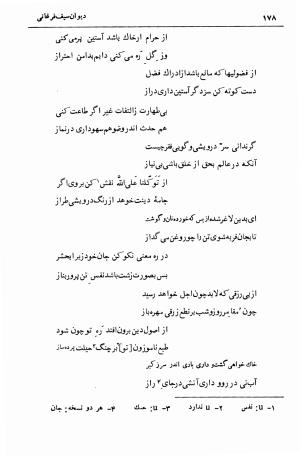 ۱۷۸
دیوان سیف فرغانی
از حرام ارخاك باشد آستین پرمی‌کنی
وز گل ره می‌کنی دایم بدامن احتراز
از فضولیها که مانع باشد از ادراك فضل
دست کوته کن سزد گر آستین داری دراز
بی‌طهارت ز التفات غیر اگر طاعت کنی
هم حدث اندر وضو هم سهو داری در نماز
گر ندانی سرّ درویشی و گویی فقر چیست
آنکه در عالم بحق از خلق باشی بی‌نیاز
از تَوَكَّلنا عَلَی‌اللّه نقش کن بر وی اگر
جامهٔ دینت خوهد از رنگ درویشی طراز
ای بدین لاغر شده از بس که خورده نان و گوشت
تا بجان فربه شوی تن را چو روغن می گداز
در ره معنی نکو کن جان خود زیرا بحشر
بس بصورت زشت باشد نفس تن پرور بناز
از بی رزقی که لابد چون اجل خواهد رسید
چون مقامر روز و شب بر نطع زرقی مهره باز
از اصول دین برون افتد ره تو چون شود
طبع ناموزون [تو] بر چنگ حیلت پرده ساز
خاك خواهی گشت و داری بادی اندر سر ز کبر
آب نی در روو داری آتشی در جای ۴ راز
۱- u: نفس ۲- u ندارد ۳- u: حسك ۴- هر دو نسخه: جان